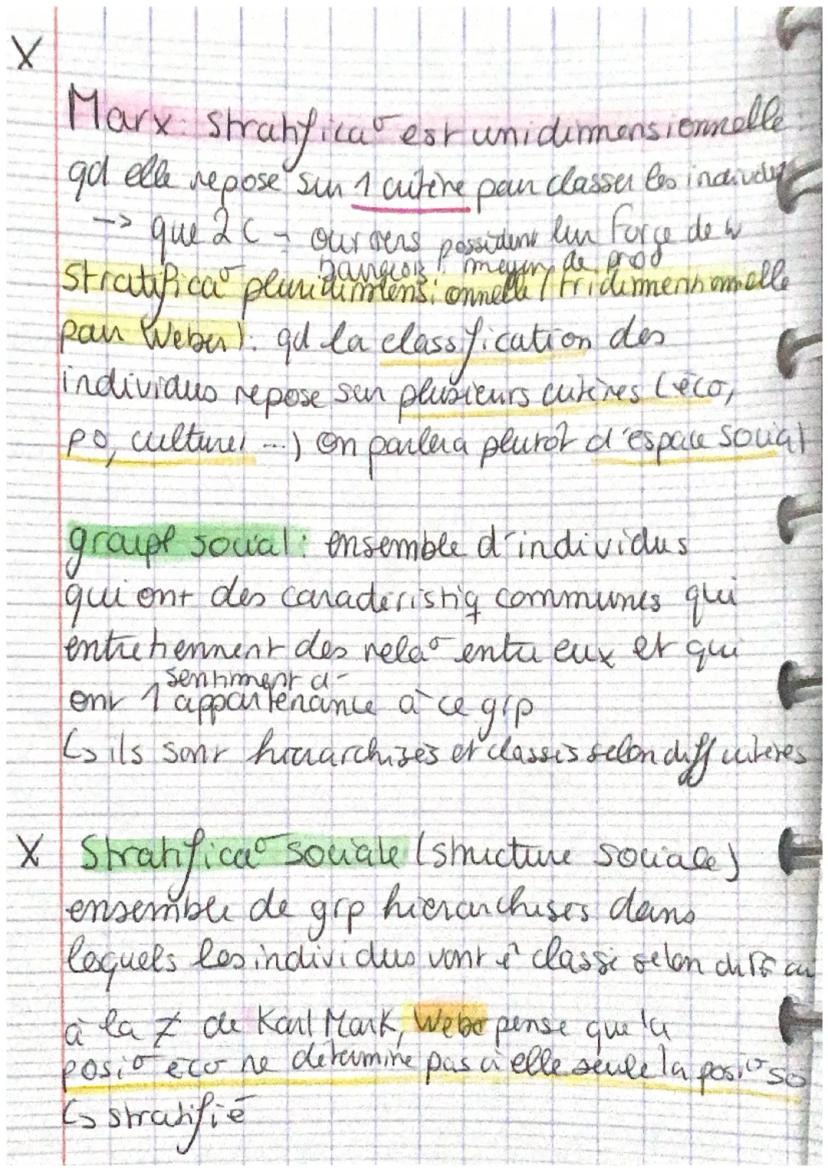 X
Marx : stratificaº est unidimensionnelle :
qd elle repose sur 1 critère pour classer les individus
-> que 2 C - ouvriers possèdent leur force de w
bourgeois : moyen de prod
Stratificaº pluridimensionnelle (tridimensionnelle
par Weber) : qd la classification des
individus repose sur plusieurs critères (éco,
po, culturel ...) on parlera plutôt d'espace social
groupe social : ensemble d'individus
qui ont des caractéristiq communes qui
entretiennent des relaº entre eux et qui
sentiment d'-
ont 1 appartenance à ce grp
↳ ils sont hiérarchisés et classés selon diff critères
X Stratificaº sociale (structure sociale)
ensemble de grp hiérarchisés dans
lequels les individus vont ê classé selon diff cri
à la ≠ de Karl Mark, Weber pense que la
posiº éco ne détermine pas à elle seule la posiº so
↳ stratifié